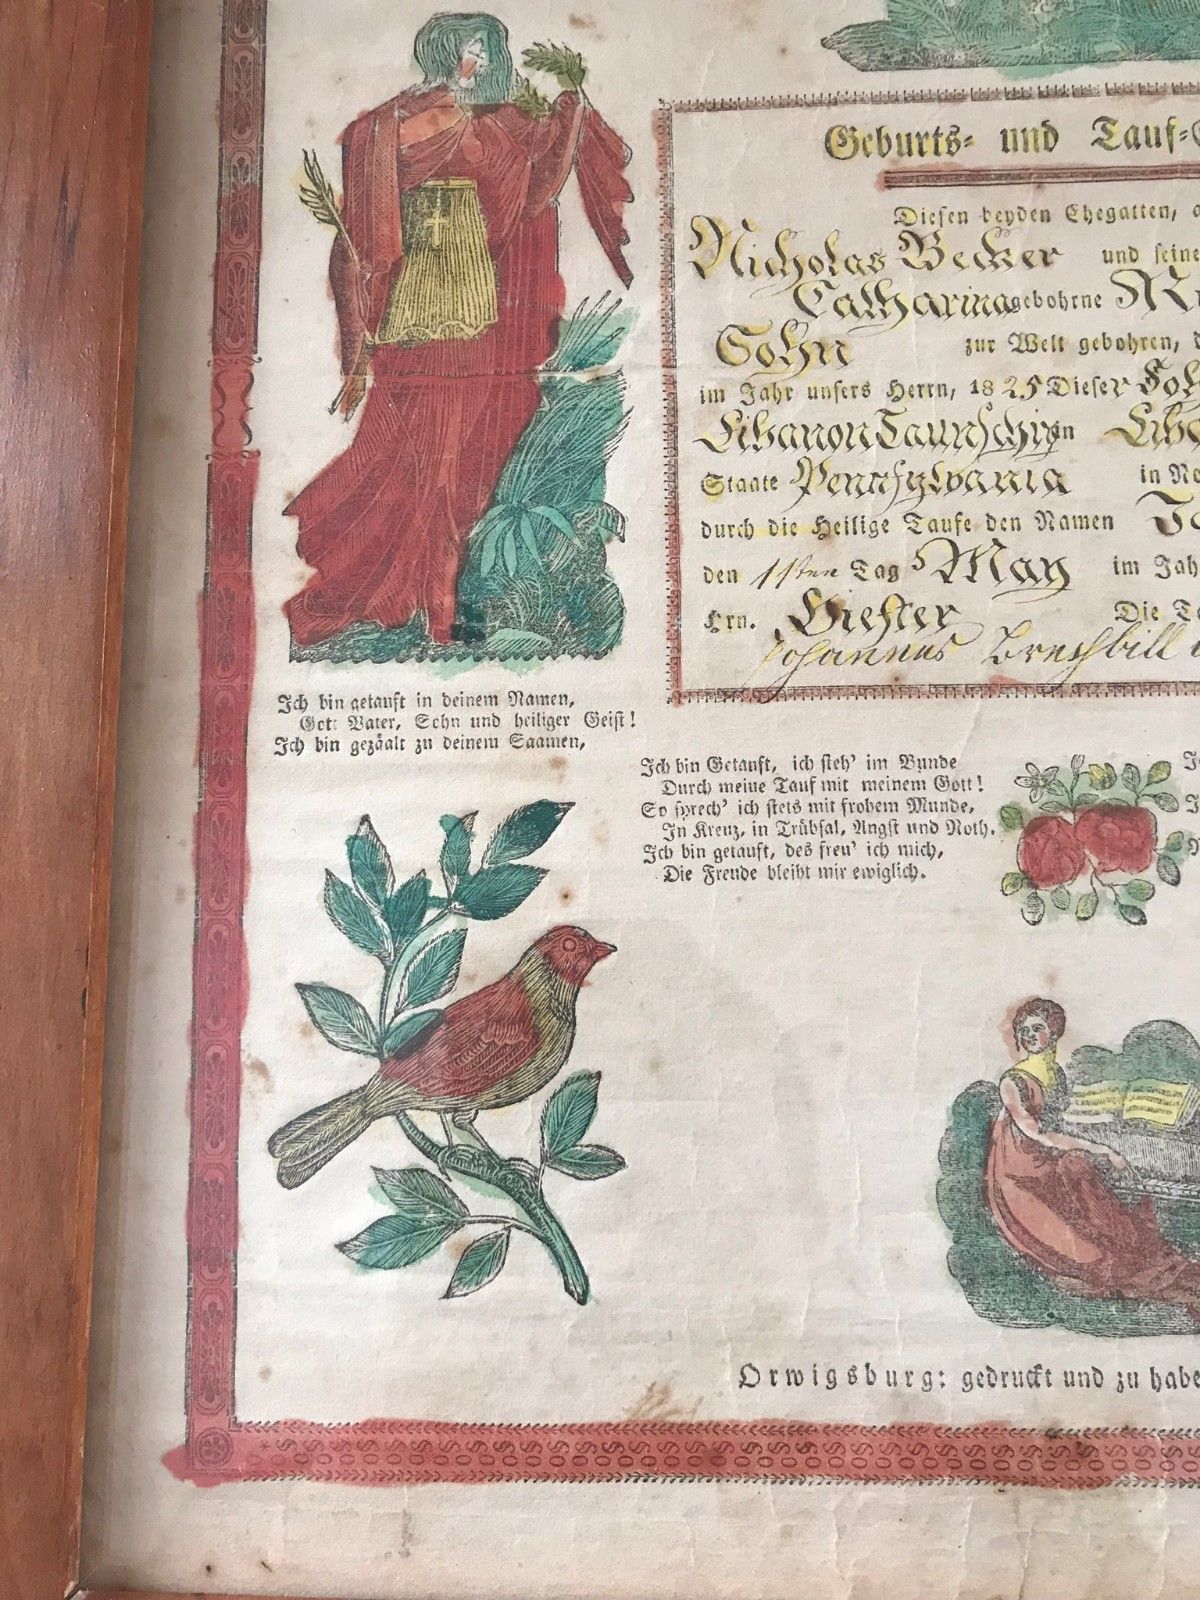 Geburts- und Tauf-
Diesen beyden Ehegatten,
Nicholas Becker und seine
Catharina gebohrne
Sohn zur Welt gebohren,
im Jahr unsers Herrn, 1825 Dieser
Libanon Taunschip in
Staate Pennsylvania in
durch die Heilige Taufe den Namen
den 1sten Tag May im Jah
Hrn. Hiester Die
Johannes Brechbill
Ich bin getauft in deinem Namen,
Gott Vater, Sohn und heiliger Geist!
Ich bin gezäalt zu deinem Saamen,
Ich bin Getauft, ich steh' im Bunde
Durch meine Tauf mit meinem Gott!
So sprech' ich stets mit frohem Munde,
In Kreuz, in Trübsal, Angst und Noth.
Ich bin getauft, des freu' ich mich,
Die Freude bleibt mir ewiglich.
Orwigsburg: gedruckt und zu habe